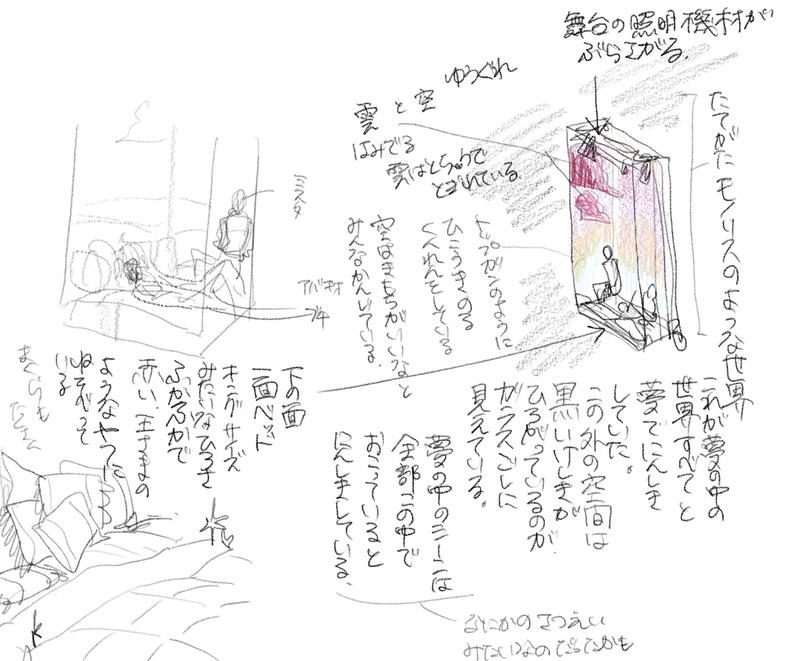 舞台の照明機材が
ぶらさがる。
ゆうぐれ
雲と空
はみでる
雲はとちゅうで
とぎれている。
たてがた モノリスのような世界
これが夢の中の
世界すべてと
夢でにんしき
していた。
この外の空間は
黒いけしきが
ひろがっているのが
ガラスごしに
見えている。
トップガンのように
ひこうきのる
くんれんをしている
空はきもちがいいなと
みんなかんじている。
ミスタ
アバッキオ
下の面
一面ベット
キングサイズ
みたいなひろさ
ふかふかで
赤い、王さまの
ようなやつに
ねそべって
いる
まくらも
たくさん
夢の中のシーンは
全部この中で
おこっていると
にんしきしている。
なにかのさつえい
みたいなのでしたかも